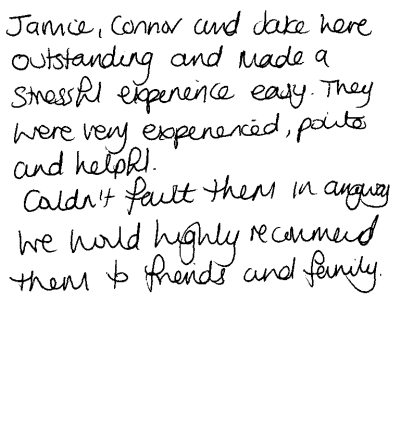 Jamie, Connor and Jake were
outstanding and made a
stressful experience easy. They
were very experienced, polite
and helpful.
Couldn't fault them in anyway
We would highly recommend
them to friends and family.